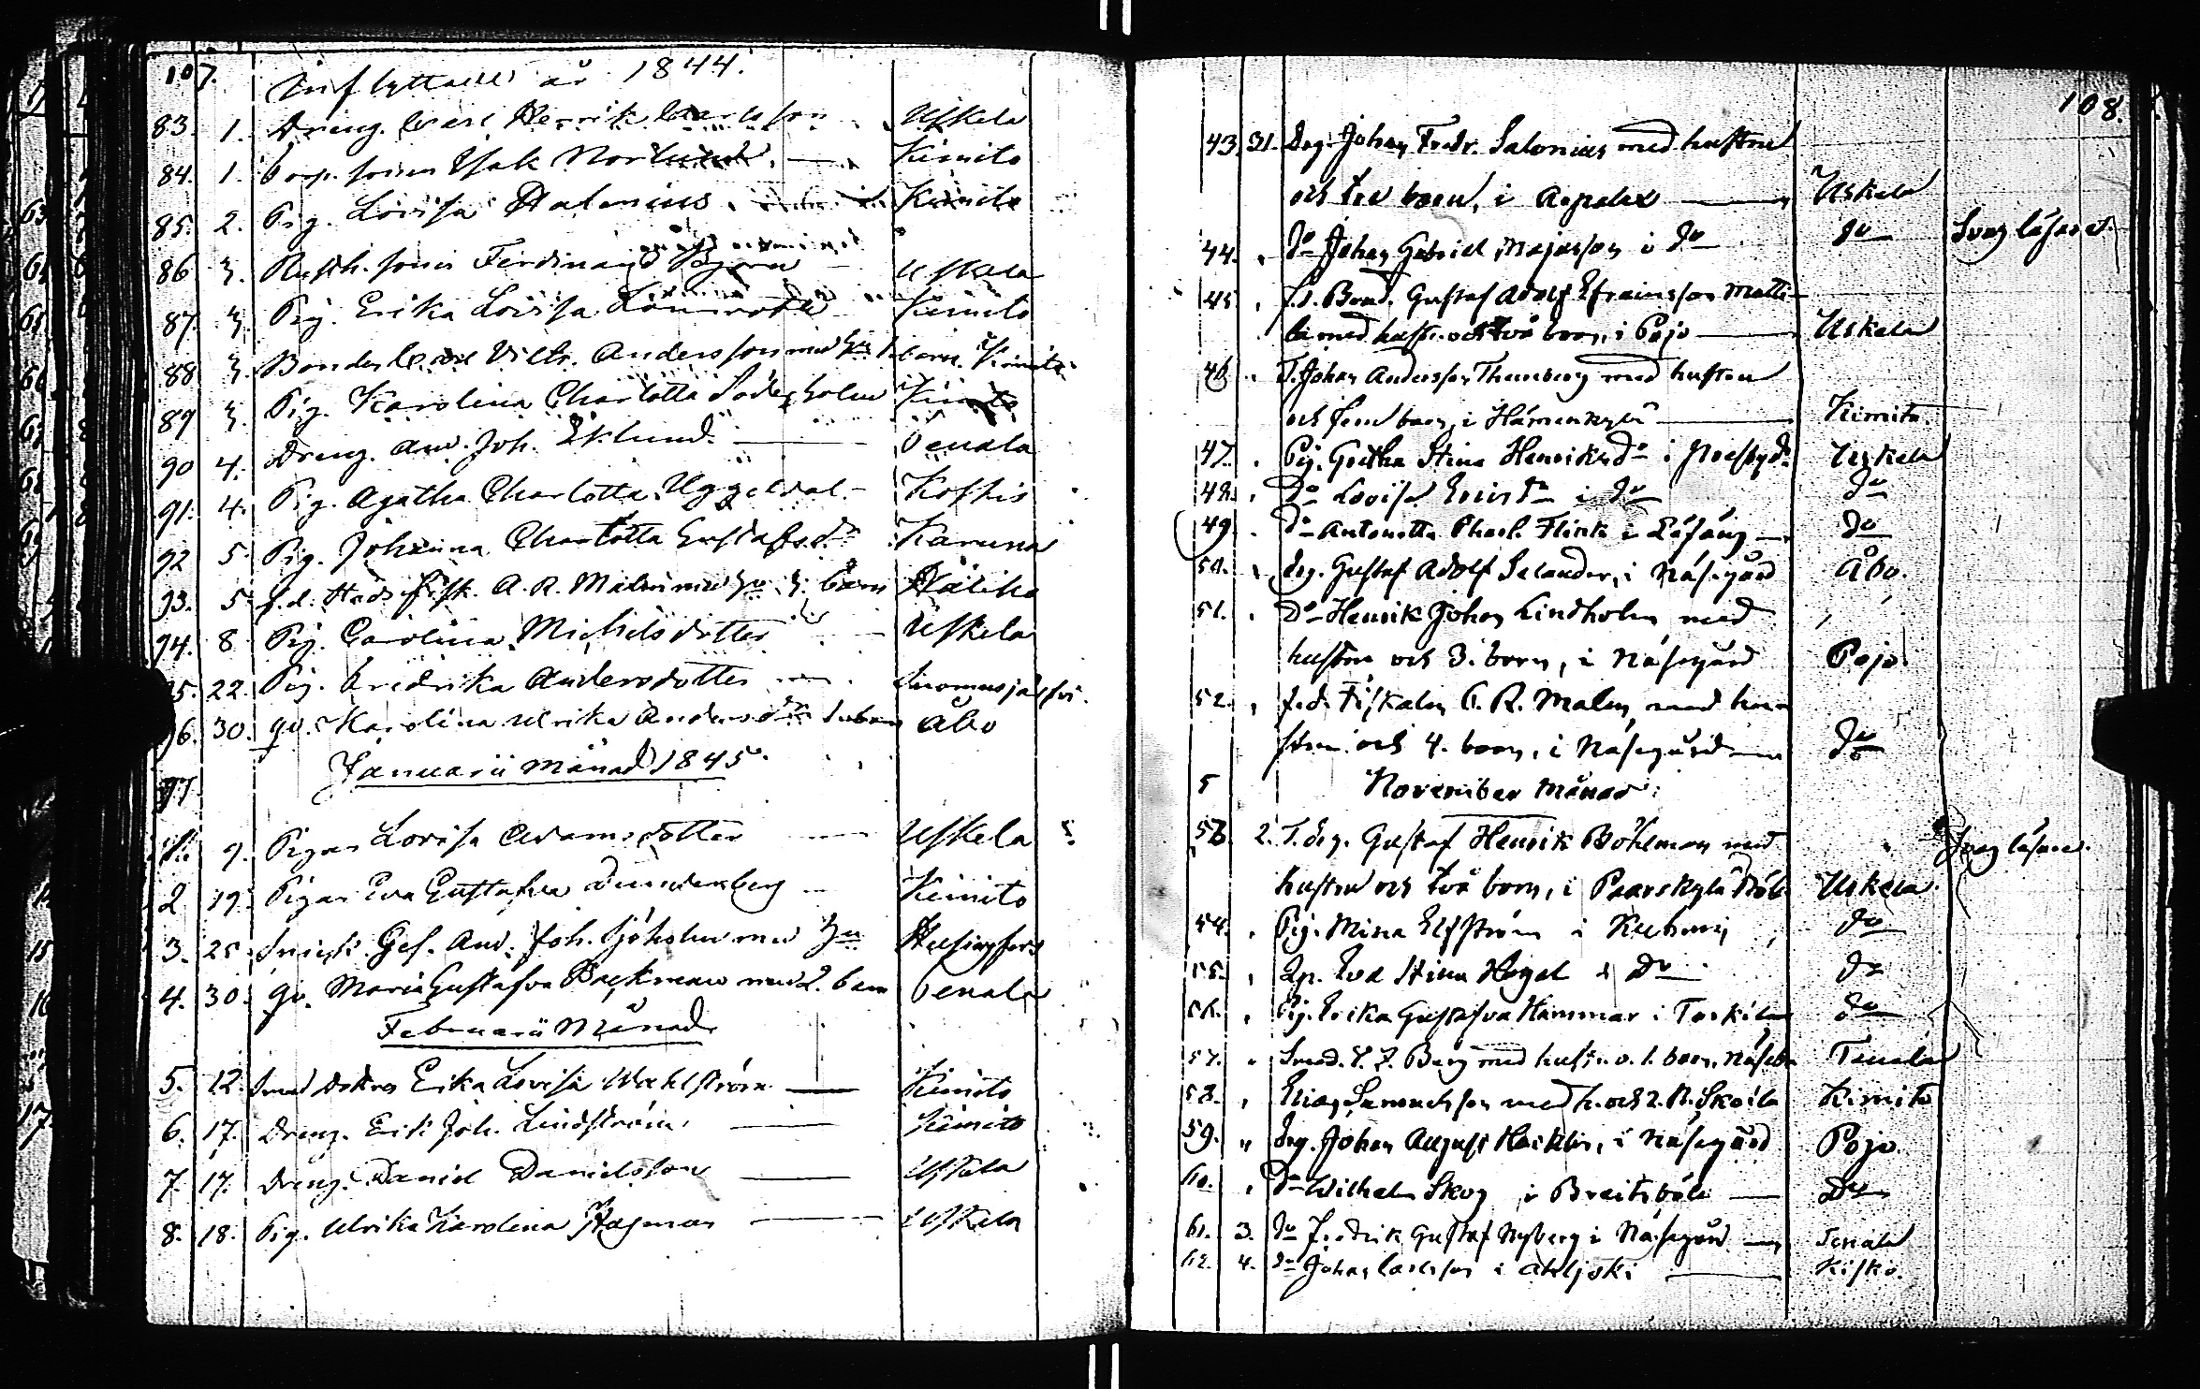 107.
Inflyttade år 1844.
83. 1. Dreng. Carl Henrik Carlsson Uskela
84. 1. Corp. sonen Isak Norlund. — Kimito
85. 2. Pig. Lovisa Stalenius. Kimito
86 3. Rusth. sonen Ferdinand Uskela
87. 3. Pig. Erika Lovisa Lönnrooth Kimito
88 3. Bonden Carl Vilh. Andersson med hu 1. barn Kimito
89 3. Pig. Karolina Charlotta Söderholm Kimito
90 4. Dreng. And. Joh. Eklund — Tenala
91. 4. Pig. Agatha Charlotta Uggeldal — Koskis
92 5. Pig. Johanna Charlotta Gustafsdr. Karuna
93. 5. f.d. Häds fisk. A. R. Malm med hu 3. barn Haliko
94. 8 Pig. Carolina Michelsdotter — Uskela
95. 22. Pig. Fredrika Andersdotter Suomusjärfvi.
96. 30. qv. Karolina Ulrika Andersdr. Åbo
Januarii månad 1845.
97
1. 9. Pigan Lovisa Adamsdotter — Uskela
2 19. Pigan Eva Gustafva Dunderberg — Kimito
3. 25 Snick. Ges. And. Joh. Sjöholm med hu Helsingfors
4. 30. qv. Maria Gustafva Backman med 2. barn Tenala
Februarii Månad.
5. 12. Smed Dottren Erika Lovisa Wahlström — Kimito
6. 17. Dreng. Erik Joh. Lindström — Kimito
7. 17. Dreng. Daniel Danielsson — Uskela
8. 18. Pig. Ulrika Karolina Hagman — Uskela
108.
43. 31. Drg. Johan Fredr. Salonius med hustru
och tre barn, i — Uskela
44. „ Do Johan Gabriel Majasson i do do Svag läsare.
45. „ f.d. Bond. Gustaf Adolf Efraimsson Matti-
la med hustr. och två barn, i Pojo — Uskela
46. „ T. Johan Andersson Thunberg med hustru
och fem barn, i Hämenkylä — Kimito
47. „ Pig. Gretha Stina Henriksdr i Uskela
48. „ Do Lovisa i do do
49. „ Do Antonetta Charl. Flink i — do
50. „ Drg. Gustaf Adolf Selander, i Näsegård Åbo.
51. „ Do Henrik Johan Lindholm med
hustru och 3. barn, i Näsegård Pojo
52. „ f.d. Fiskalen A. R. Malm, med hu-
stru och 4. barn, i Näsegård — do
5 November Månad.
53. 2. T. drg. Gustaf Henrik Böhlman med Svag läsare.
hustru och två barn, i Uskela
54. „ Pig. Mina Elfström i do
55. „ Eva Stina Hegel i Do do
56. „ Pig. Erika Gustafva Hammar i do
57. „ Smed. Berg med hustr. o. 1. barn, Tenala
58. „ Elias Samuelsson med h. och 2. B. Kimito
59. „ Drg. Johan August i Näsegård Pojo
60. „ Do Wilhelm Skog i Breitsböle — Do
61. 3. Do Fredrik Gustaf Nyberg i Näsegård — Tenala
62. 4. Do Johan Carlsson i — Kisko.